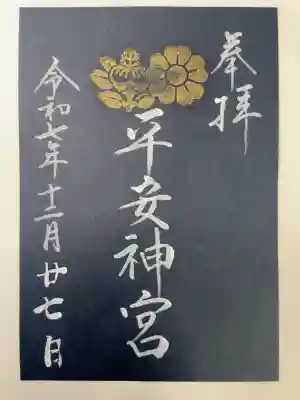 奉拝
平安神宮
令和七年十二月廿七日